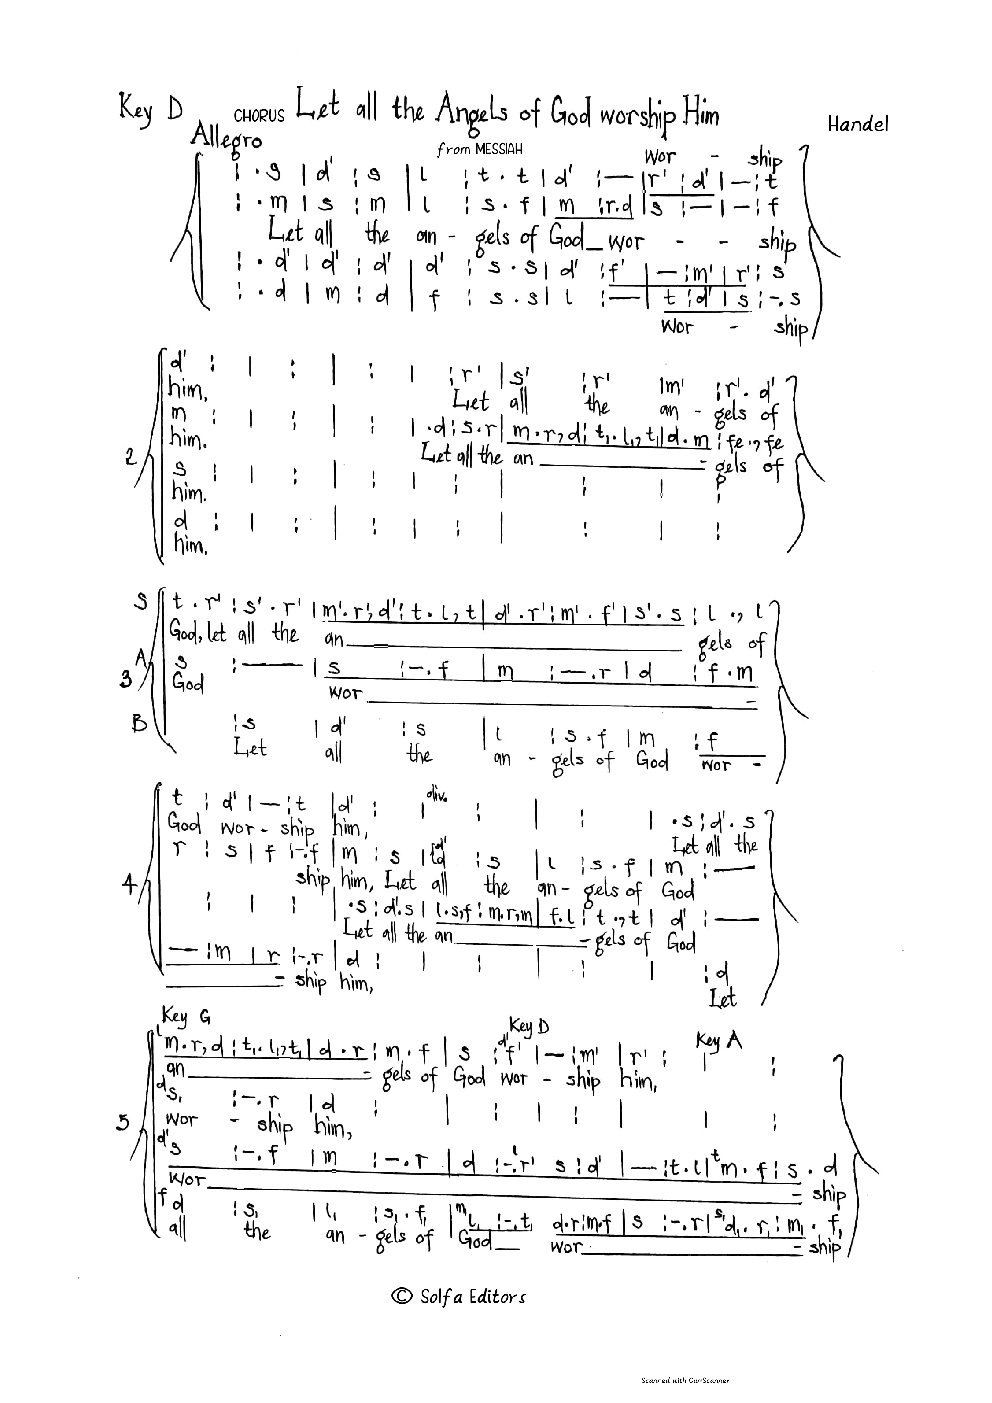 Key D CHORUS Let all the Angels of God worship Him
Handel
Allegro
from MESSIAH
Wor - ship
¦ . s | d' ¦ s | l ¦ t . t | d' ¦ — | r' ¦ d' | — ¦ t
¦ . m | s ¦ m | l ¦ s . f | m ¦ r.d | s ¦ — | — ¦ f
Let all the an - gels of God_ wor - - ship
¦ . d' | d' ¦ d' | d' ¦ s . s | d' ¦ f' | — ¦ m' | r' ¦ s
¦ . d | m ¦ d | f ¦ s . s | l ¦ — | t ¦ d' | s ¦ -. s
Wor - ship
d' ¦ | ¦ | ¦ | ¦ r' | s' ¦ r' | m' ¦ r' . d'
him, Let all the an - gels of
m ¦ | ¦ | ¦ | . d ¦ s . r | m . r, d ¦ t, . l,, t, | d . m ¦ fe ., fe
him. Let all the an - gels of
2
s ¦ | ¦ | ¦ | ¦ | ¦ | ¦
him.
d ¦ | ¦ | ¦ | ¦ | ¦ | ¦
him.
S t . r' ¦ s' . r' | m' . r', d' ¦ t . l, t | d' . r' ¦ m' . f' | s' . s ¦ l ., l
God, let all the an gels of
A s ¦ — | s ¦ -. f | m ¦ -. r | d ¦ f . m
3 God wor -
B ¦ s | d' ¦ s | l ¦ s . f | m ¦ f
Let all the an - gels of God wor -
div.
t ¦ d' | — ¦ t | d' ¦ | ¦ | ¦ | . s ¦ d' . s
God wor - ship him, Let all the
r ¦ s | f ¦ -. f | m ¦ s | d' ¦ s | l ¦ s . f | m ¦ —
4 ship him, Let all the an - gels of God
¦ | ¦ | . s ¦ d' . s | l . s, f ¦ m . r, m | f . l ¦ t ., t | d' ¦ —
Let all the an - gels of God
— ¦ m | r ¦ -. r | d ¦ | ¦ | ¦ | ¦ d
- ship him, Let
Key G Key D Key A
l m . r, d ¦ t, . l,, t, | d . r ¦ m . f | s ¦ d' f' | — ¦ m' | r' ¦ | ¦
an - gels of God wor - ship him,
d s, ¦ -. r | d ¦ | ¦ | ¦ | ¦
5 wor - ship him,
d' s ¦ -. f | m ¦ -. r | d ¦ -. l r' | s ¦ d' | — ¦ t . l | t m . f ¦ s . d
wor - ship
f d ¦ s, | l, ¦ s, . f, | m l, ¦ -. t, | d . r ¦ m . f | s ¦ -. r | s d, . r, ¦ m, . f,
all the an - gels of God_ wor - ship
© Solfa Editors
Scanned with CamScanner